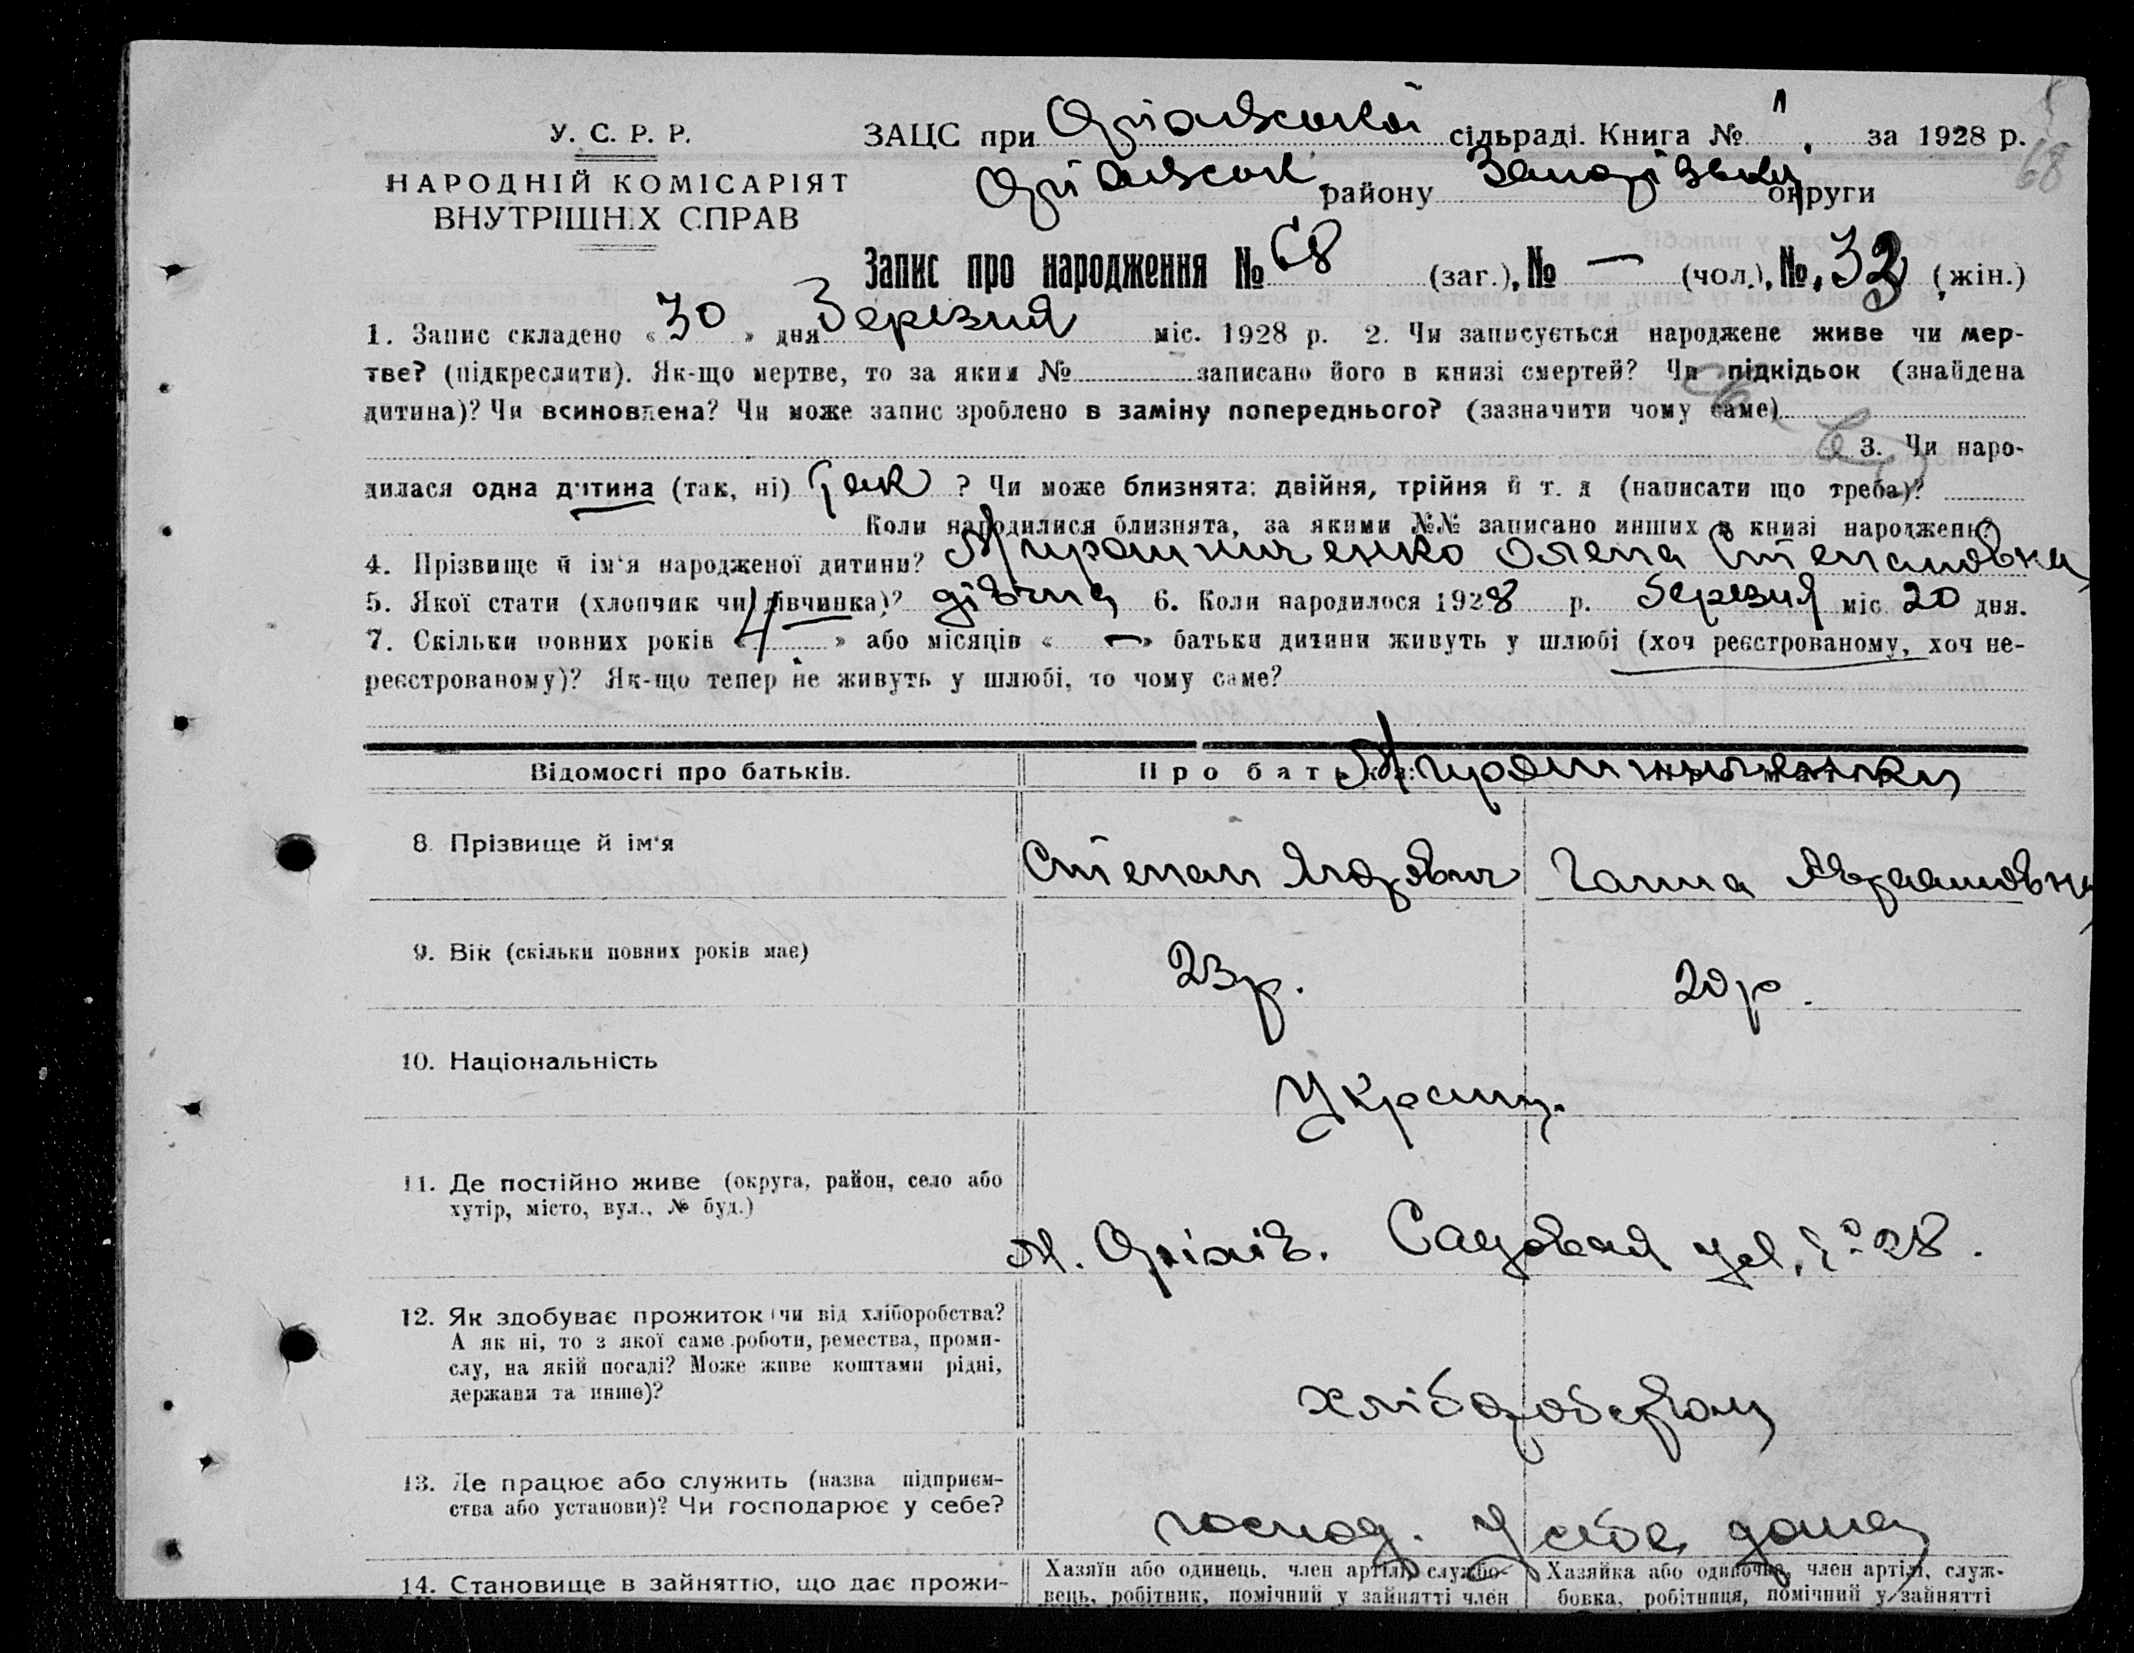 У. С. Р. Р.
НАРОДНІЙ КОМІСАРІЯТ
ВНУТРІШНІХ СПРАВ
ЗАЦС при Оріхівської сільраді. Книга № за 1928 р.
68
Оріхівськ. району Запорізьки округи
Запис про народження № 68 (заг.), № — (чол.), № 32 (жін.)
1. Запис складено « 30 » дня Березня міс. 1928 р. 2. Чи записується народжене живе чи мер-
тве? (підкреслити). Як-що мертве, то за яким № записано його в книзі смертей? Чи підкідьок (знайдена
дитина)? Чи всиновлена? Чи може запис зроблено в заміну попереднього? (зазначити чому саме)
3. Чи наро-
дилася одна дитина (так, ні) Так ? Чи може близнята: двійня, трійня й т. д (написати що треба)?
Коли народилися близнята, за якими №№ записано инших в книзі народжень?
4. Прізвище й ім'я народженої дитини? Мирошниченко Олена Степановна
5. Якої стати (хлопчик чи дівчинка)? дівчина 6. Коли народилося 1928 р. Березня міс 20 дня.
7. Скільки повних років « 4 » або місяців « — » батьки дитини живуть у шлюбі (хоч реєстрованому, хоч не-
реєстрованому)? Як-що тепер не живуть у шлюбі, то чому саме?
Відомості про батьків.
Про батька:
Мирошниченки
8. Прізвище й ім'я
Степан Ганна Авраамовна
9. Вік (скільки повних років має)
23 р. 20 р.
10. Національність
Украинц.
11. Де постійно живе (округа, район, село або
хутір, місто, вул., № буд.)
м. Оріхів. Садовая ул. № 28.
12. Як здобуває прожиток (чи від хліборобства?
А як ні, то з якої саме роботи, ремества, проми-
слу, на якій посаді? Може живе коштами рідні,
держави та инше)?
хліборобством
13. Де працює або служить (назва підприєм-
ства або установи)? Чи господарює у себе?
господ. у себе дома
14. Становище в зайняттю, що дає прожи-
Хазяїн або одинець, член артілі, службо-
вець, робітник, помічний у зайнятті член
Хазяйка або одиночка, член артілі, служ-
бовка, робітниця, помічний у зайнятті